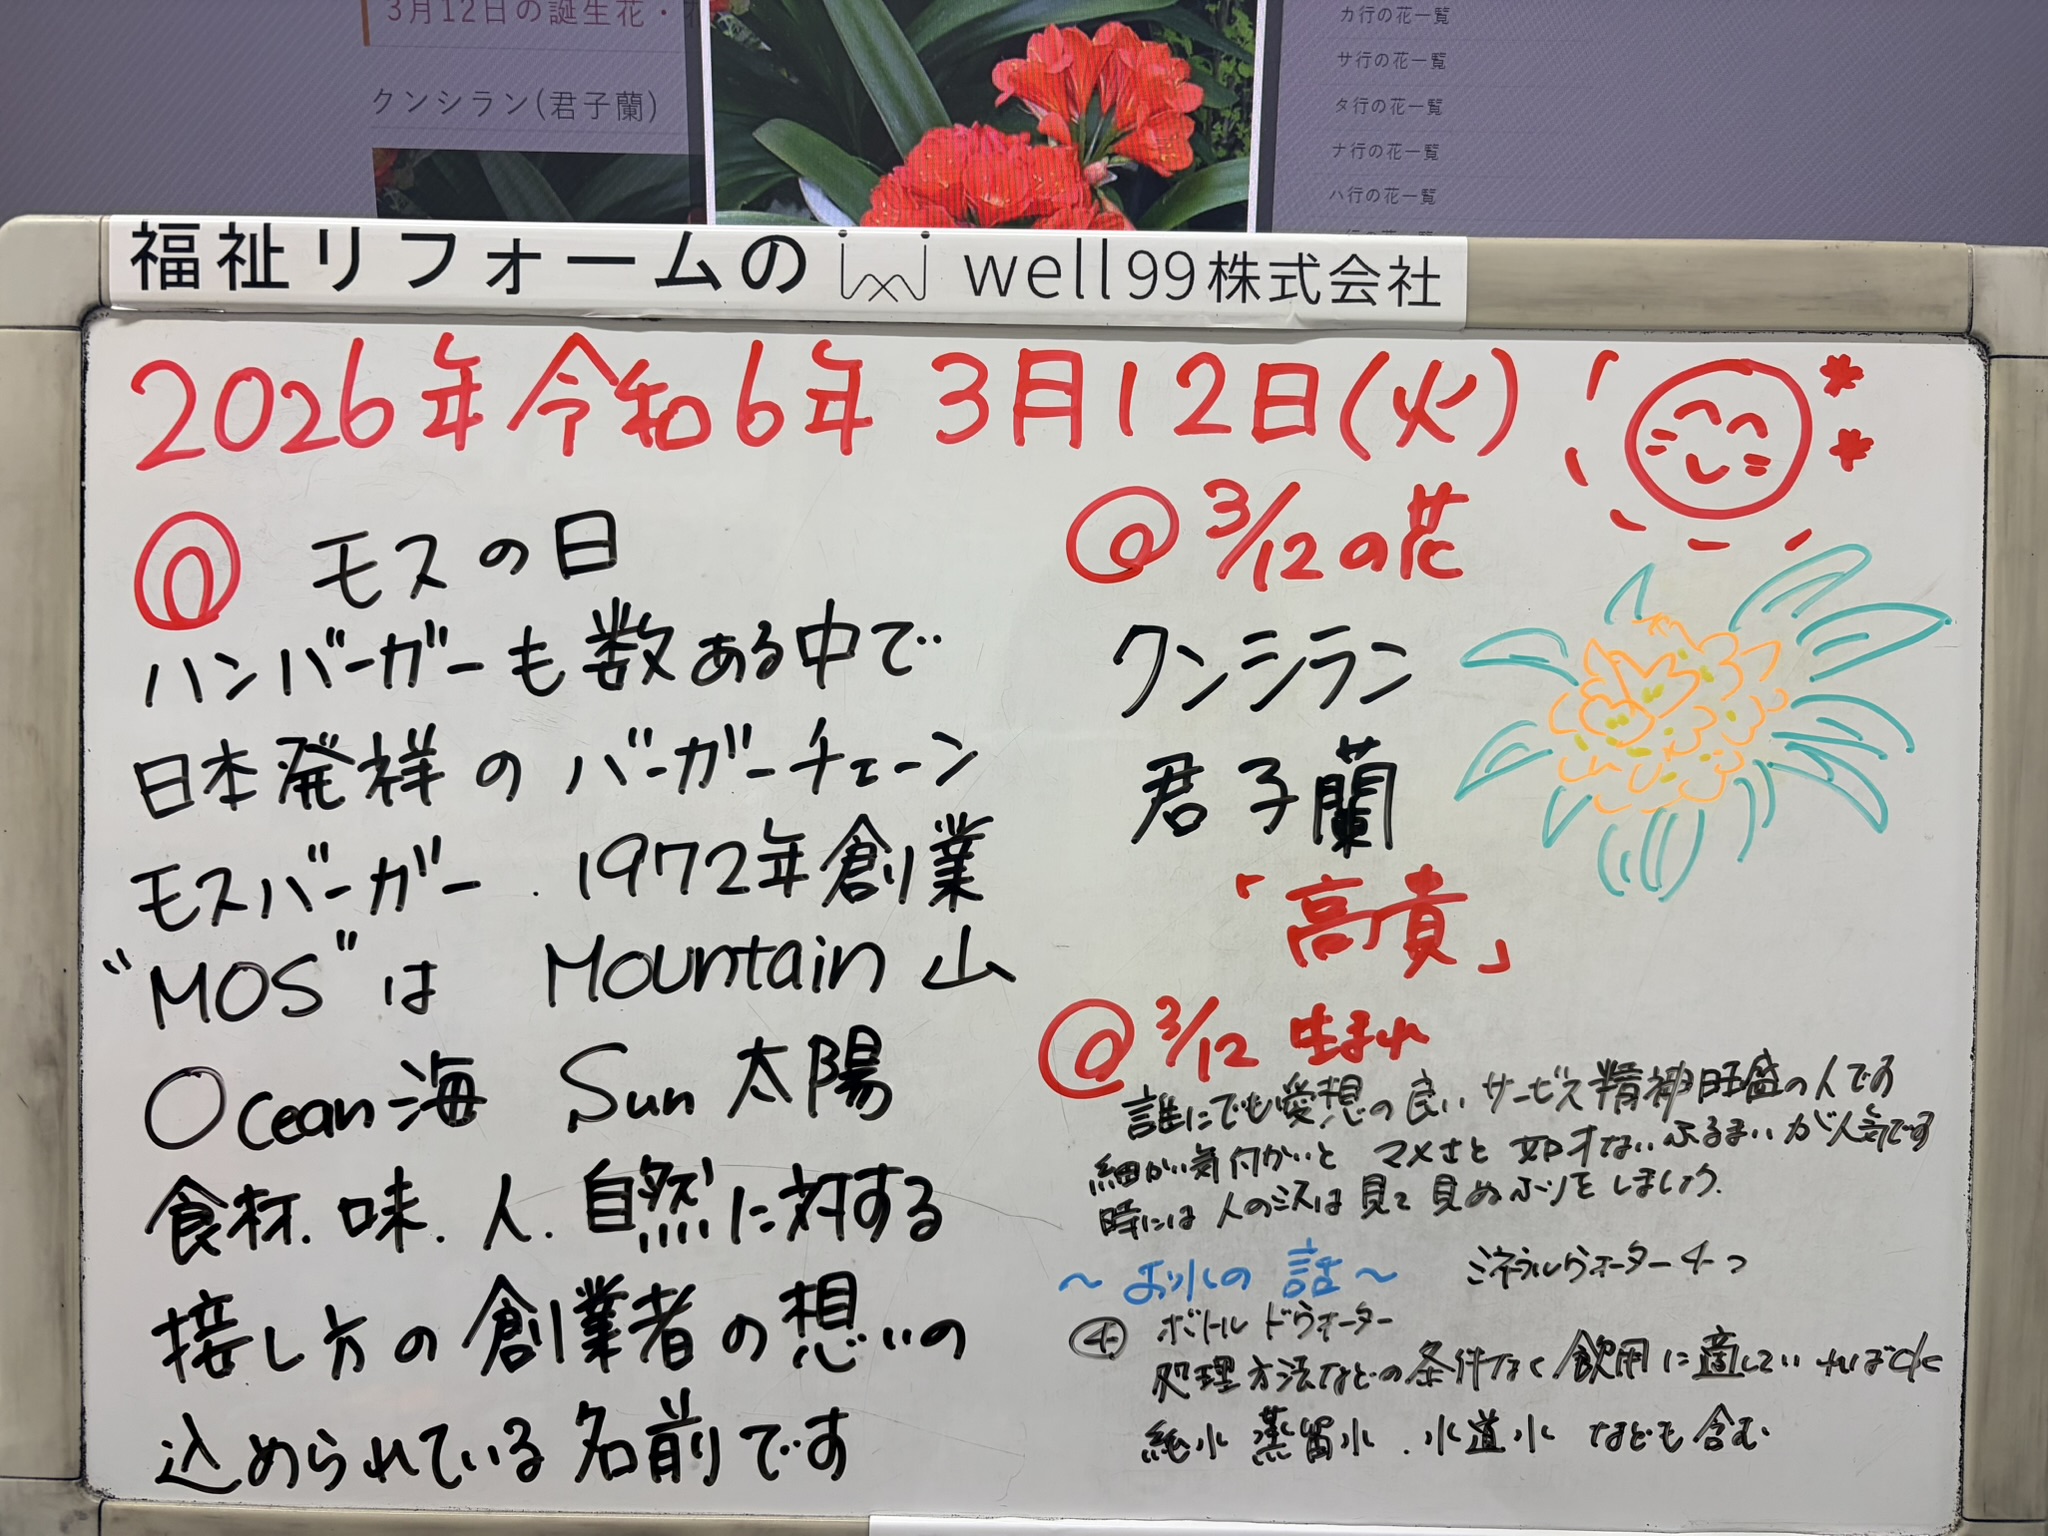 3月12日の誕生花・
クンシラン(君子蘭)
カ行の花一覧
サ行の花一覧
タ行の花一覧
ナ行の花一覧
ハ行の花一覧
福祉リフォームの well99株式会社
2026年令和6年 3月12日(火)
モスの日
ハンバーガーも数ある中で
日本発祥のバーガーチェーン
モスバーガー. 1972年創業
"MOS"は Mountain 山
Ocean海 Sun 太陽
食材. 味. 人. 自然に対する
接し方の創業者の想いの
込められている名前です
@ 3/12の花
クンシラン
君子蘭
「高貴」
@ 3/12 生まれ
誰にでも愛想の良いサービス精神旺盛の人です
細かい気付かいと マメさと 如才ないふるまいが人気です
時には人のミスは見て見ぬふりをしましょう.
～お水の話～ ミネラルウォーター4つ
④ ボトルドウォーター
処理方法などの条件なく飲用に適していればOK
純水 蒸留水. 水道水 なども含む